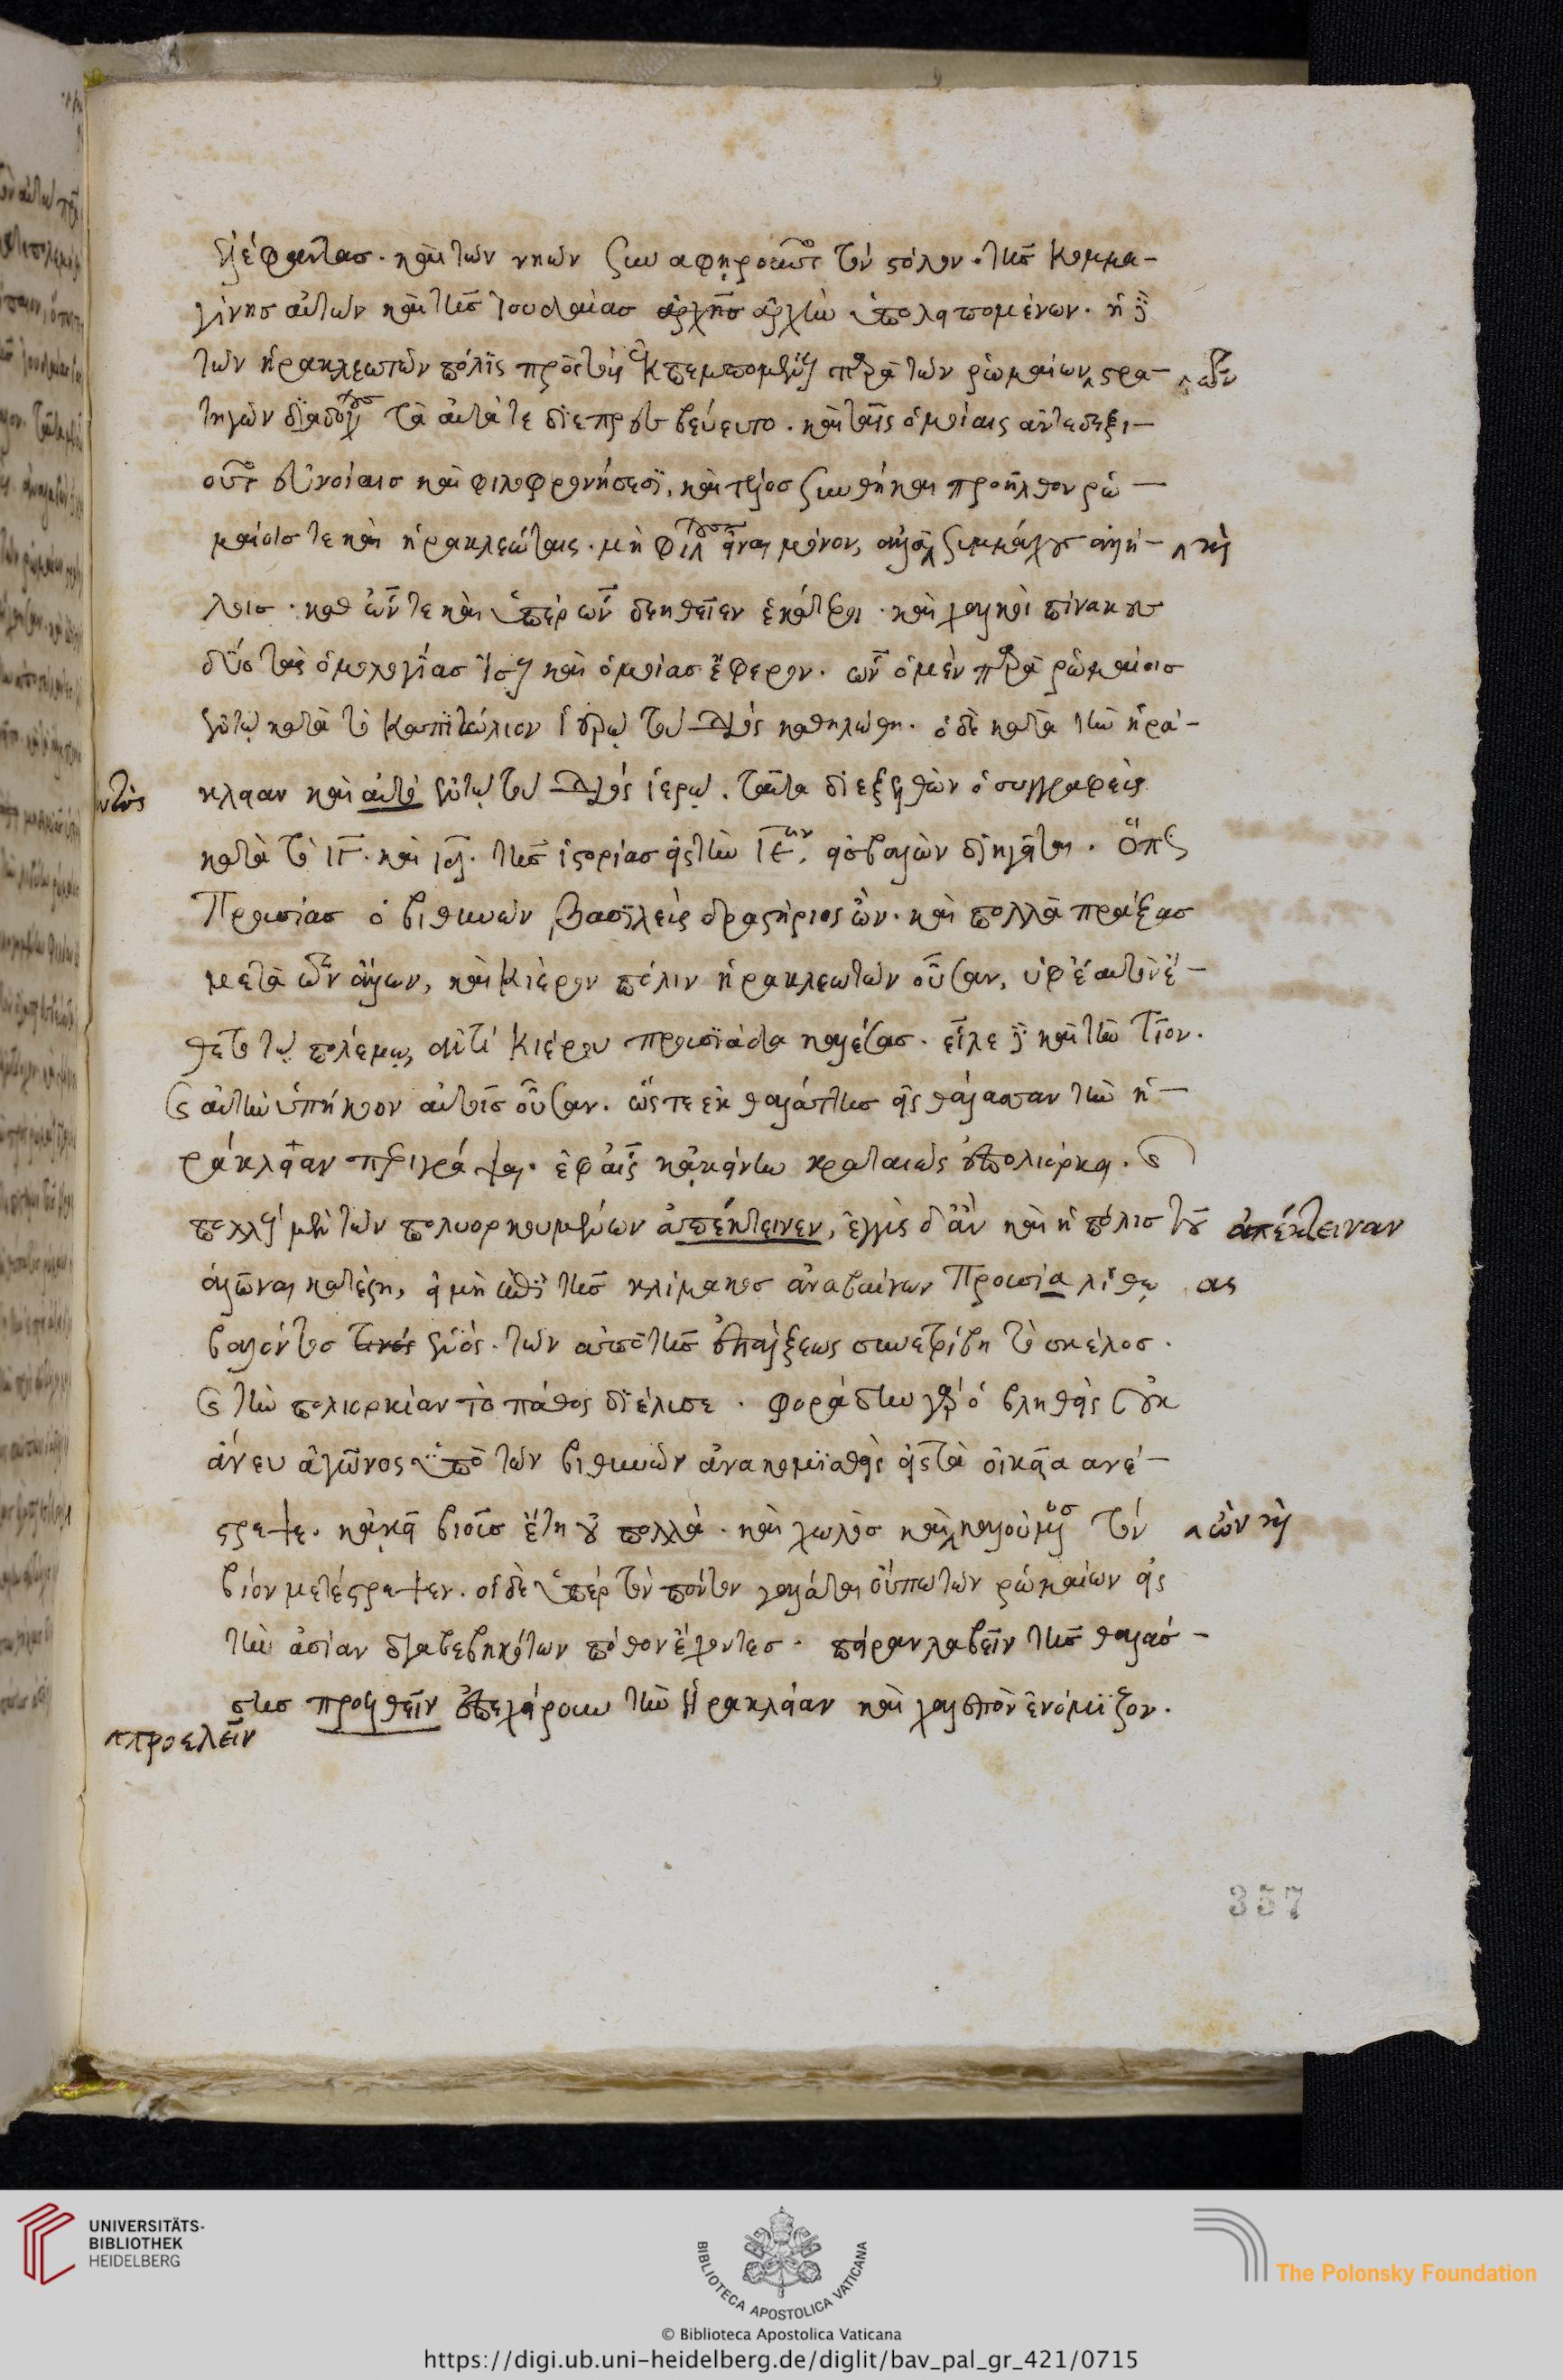 ἐλέφαντας. καὶ τῶν νηῶν συναφῃροῦντο τὸν στόλον. τῆς Κομμα-
γινῆς αὐτῶν καὶ τῆς Ἰουδαίας ἀρχὴν ὑπολειπομένων. ἡ δὲ
τῶν ἡρακλεωτῶν πόλις πρὸς τοὺς ἐκπεμπομένους παρὰ τῶν ῥωμαίων στρα-
τηγῶν διαδόχους τὰ αὐτά τε διεπρεσβεύετο. καὶ ταῖς ὁμοίαις ἀντεδεξι-
οῦτο εὐνοίαις καὶ φιλοφρονήσεσι. καὶ τέλος συνθῆκαι προῆλθον ῥω-
μαίοις τε καὶ ἡρακλεώταις. μὴ φίλους εἶναι μόνον, ἀλλὰ συμμάχους ἀλλή-
λοις. καθ' ὧν τε καὶ ὑπὲρ ὧν δεηθεῖεν ἑκάτεροι. καὶ χαλκοῖ πίνακες
δύο τὰς ὁμολογίας ἴσας καὶ ὁμοίας ἔφερον. ὧν ὁ μὲν παρὰ ῥωμαίοις
ἐν τῷ κατὰ τὸ Καπιτώλιον ἱερῷ τοῦ Διὸς καθηλώθη. ὁ δὲ κατὰ τὴν ἡρά-
κλειαν καὶ αὐτὸ ἐν τῷ τοῦ Διὸς ἱερῷ. ταῦτα διεξελθὼν ὁ συγγραφεὺς
κατὰ τὸ ΙΓ. καὶ ΙΔ. τῆς ἱστορίας εἰς τὴν ΙΕ. εἰσβαλὼν διηγεῖται. ὅπως
Προυσίας ὁ βιθυνῶν βασιλεὺς δραστήριος ὤν. καὶ πολλὰ πράξας
μετὰ τῶν ἄλλων, καὶ Κίερον πόλιν ἡρακλεωτῶν οὖσαν, ὑφ' ἑαυτὸν ἔ-
θετο τῷ πολέμῳ, ἀντὶ Κιέρου προυσιάδα καλέσας. εἷλε δὲ καὶ τὴν Τῖον.
καὶ αὐτὴν ὑπήκοον αὐτοῖς οὖσαν. ὥστε ἐκ θαλάττης εἰς θάλασσαν τὴν ἡ-
ράκλειαν περιγράψαι. ἐφ' αἷς κἀκείνην κραταιῶς ἐπολιόρκει. καὶ
πολλοὺς μὲν τῶν πολυορκουμένων ἀπέκτεινεν, ἐγγὺς δ' ἂν καὶ ἡ πόλις τοῦ ἀπέκτειναν
ἁλῶναι κατέστη, εἰ μὴ ἐπὶ τῆς κλίμακος ἀναβαίνων Προυσία λίθῳ ας
βαλόντος τινὸς ἑνός. τῶν ἀπὸ τῆς ἐπάλξεως συνετρίβη τὸ σκέλος.
καὶ τὴν πολιορκίαν τὸ πάθος διέλυσε. φοράδην γὰρ ὁ βληθεὶς οὐκ
ἄνευ ἀγῶνος ὑπὸ τῶν βιθυνῶν ἀνακομισθεὶς εἰς τὰ οἰκεῖα ἀνέ-
στρεψε. κἀκεῖ βιοὺς ἔτη οὐ πολλά. καὶ χωλὸς καὶ καλούμενος τὸν ὢν καὶ
βίον μετέστρεψεν. οἱ δὲ ὑπὲρ τὸν πόντον γαλάται οὔπω τῶν ῥωμαίων εἰς
τὴν ἀσίαν διαβεβηκότων πόθον ἔχοντες. πεῖραν λαβεῖν τῆς θαλάσ-
σης προελθεῖν ἐπεχείρουν τὴν Ἡράκλειαν καὶ χαλεπὸν ἐνόμιζον.
προελεῖν
357
UNIVERSITÄTS-
BIBLIOTHEK
HEIDELBERG
BIBLIOTECA APOSTOLICA VATICANA
The Polonsky Foundation
© Biblioteca Apostolica Vaticana
https://digi.ub.uni-heidelberg.de/diglit/bav_pal_gr_421/0715